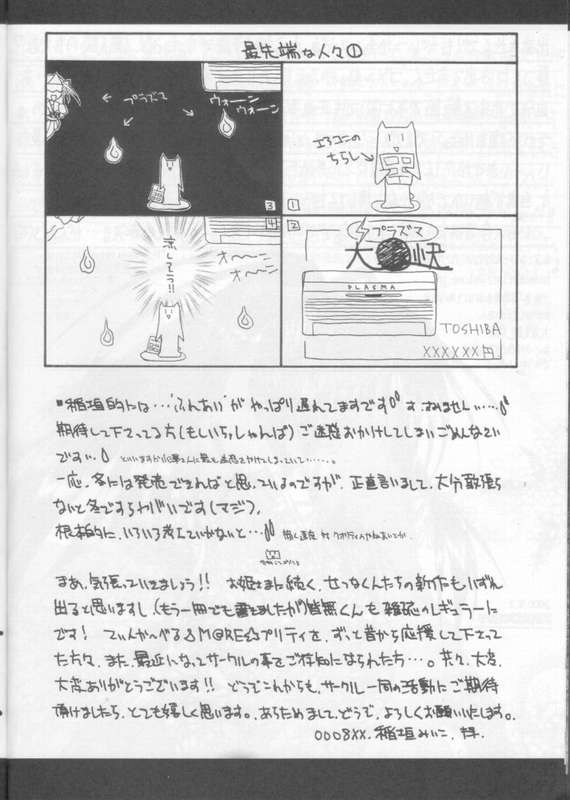 最先端な人々①
1
エアコンの
ちらし
2
プラズマ
大●快
PLASMA
TOSHIBA
XXXXXX円
3
プラズマ
ウォーン
ウォーン
4
涼してう!!
オ〜〜ン
オ〜〜ン
■稲垣的には…'ふんあい'が やっぱり遅れてますです す、すみません……
期待して下さってる方(もしいらっしゃれば) ご迷惑おかけしてしまいごめんなさい
ですい、
一応、冬には発売できればと思っているのですが、正直言いまして、大分頑張ら
ないと冬ですらヤバいです(マジ)。
根本的に、いろいろ考えていかないと…
まあ、気張っていきましょう!! お姫さまに続く、せつなくんたちの新作もいずれ
出ると思いますし(もう一冊でも書きましたが)皆無くんも雑誌レギュラーに
です! てぃんかーべる&M@RE☆プリティを、ずっと昔から応援して下さって
た方々、また、最近になってサークルの事をご存知になられた方…。共々、大変、
大変ありがとうございます!! どうぞこれからも、サークル一同の活動にご期待
頂けましたら、とても嬉しく思います。あらためまして、どうぞ、よろしくお願いいたします。
0008XX. 稲垣みいこ 拝.